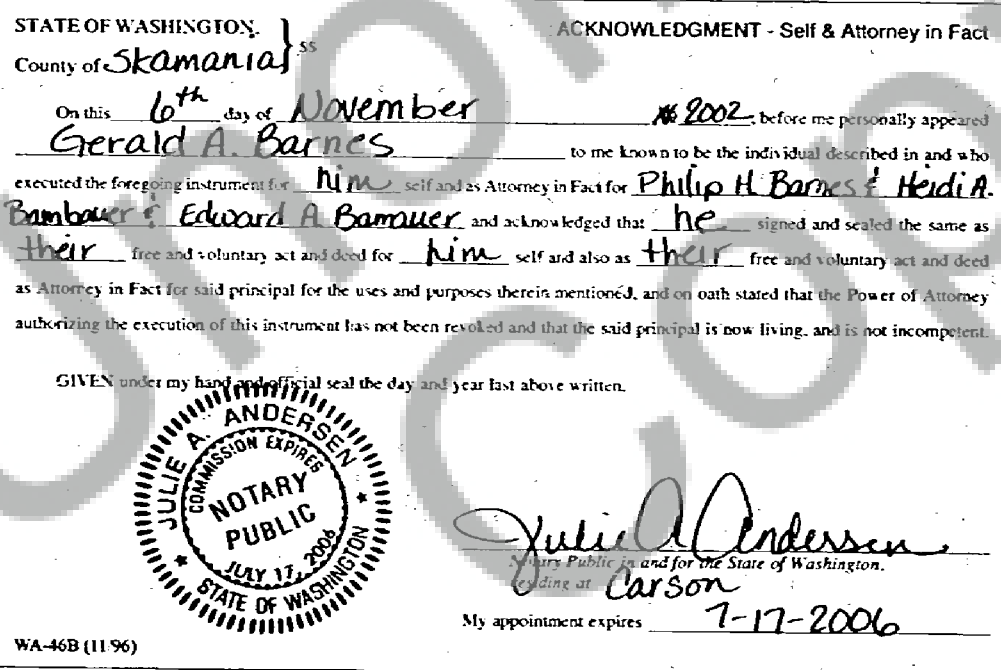 STATE OF WASHINGTON,
County of Skamania } ss
ACKNOWLEDGMENT - Self & Attorney in Fact
On this 6th day of November 2002, before me personally appeared
Gerald A. Barnes to me known to be the individual described in and who
executed the foregoing instrument for him self and as Attorney in Fact for Philip H. Barnes & Heidi A.
Bambauer & Edward A Bamauer and acknowledged that he signed and sealed the same as
their free and voluntary act and deed for him self and also as their free and voluntary act and deed
as Attorney in Fact for said principal for the uses and purposes therein mentioned, and on oath stated that the Power of Attorney
authorizing the execution of this instrument has not been revoked and that the said principal is now living, and is not incompetent.
GIVEN under my hand and official seal the day and year last above written.
JULIE A. ANDERSEN
COMMISSION EXPIRES
NOTARY
PUBLIC
JULY 17, 2006
STATE OF WASHINGTON
Julie A Andersen
Notary Public in and for the State of Washington,
residing at Carson
My appointment expires 7-17-2006
WA-46B (11/96)